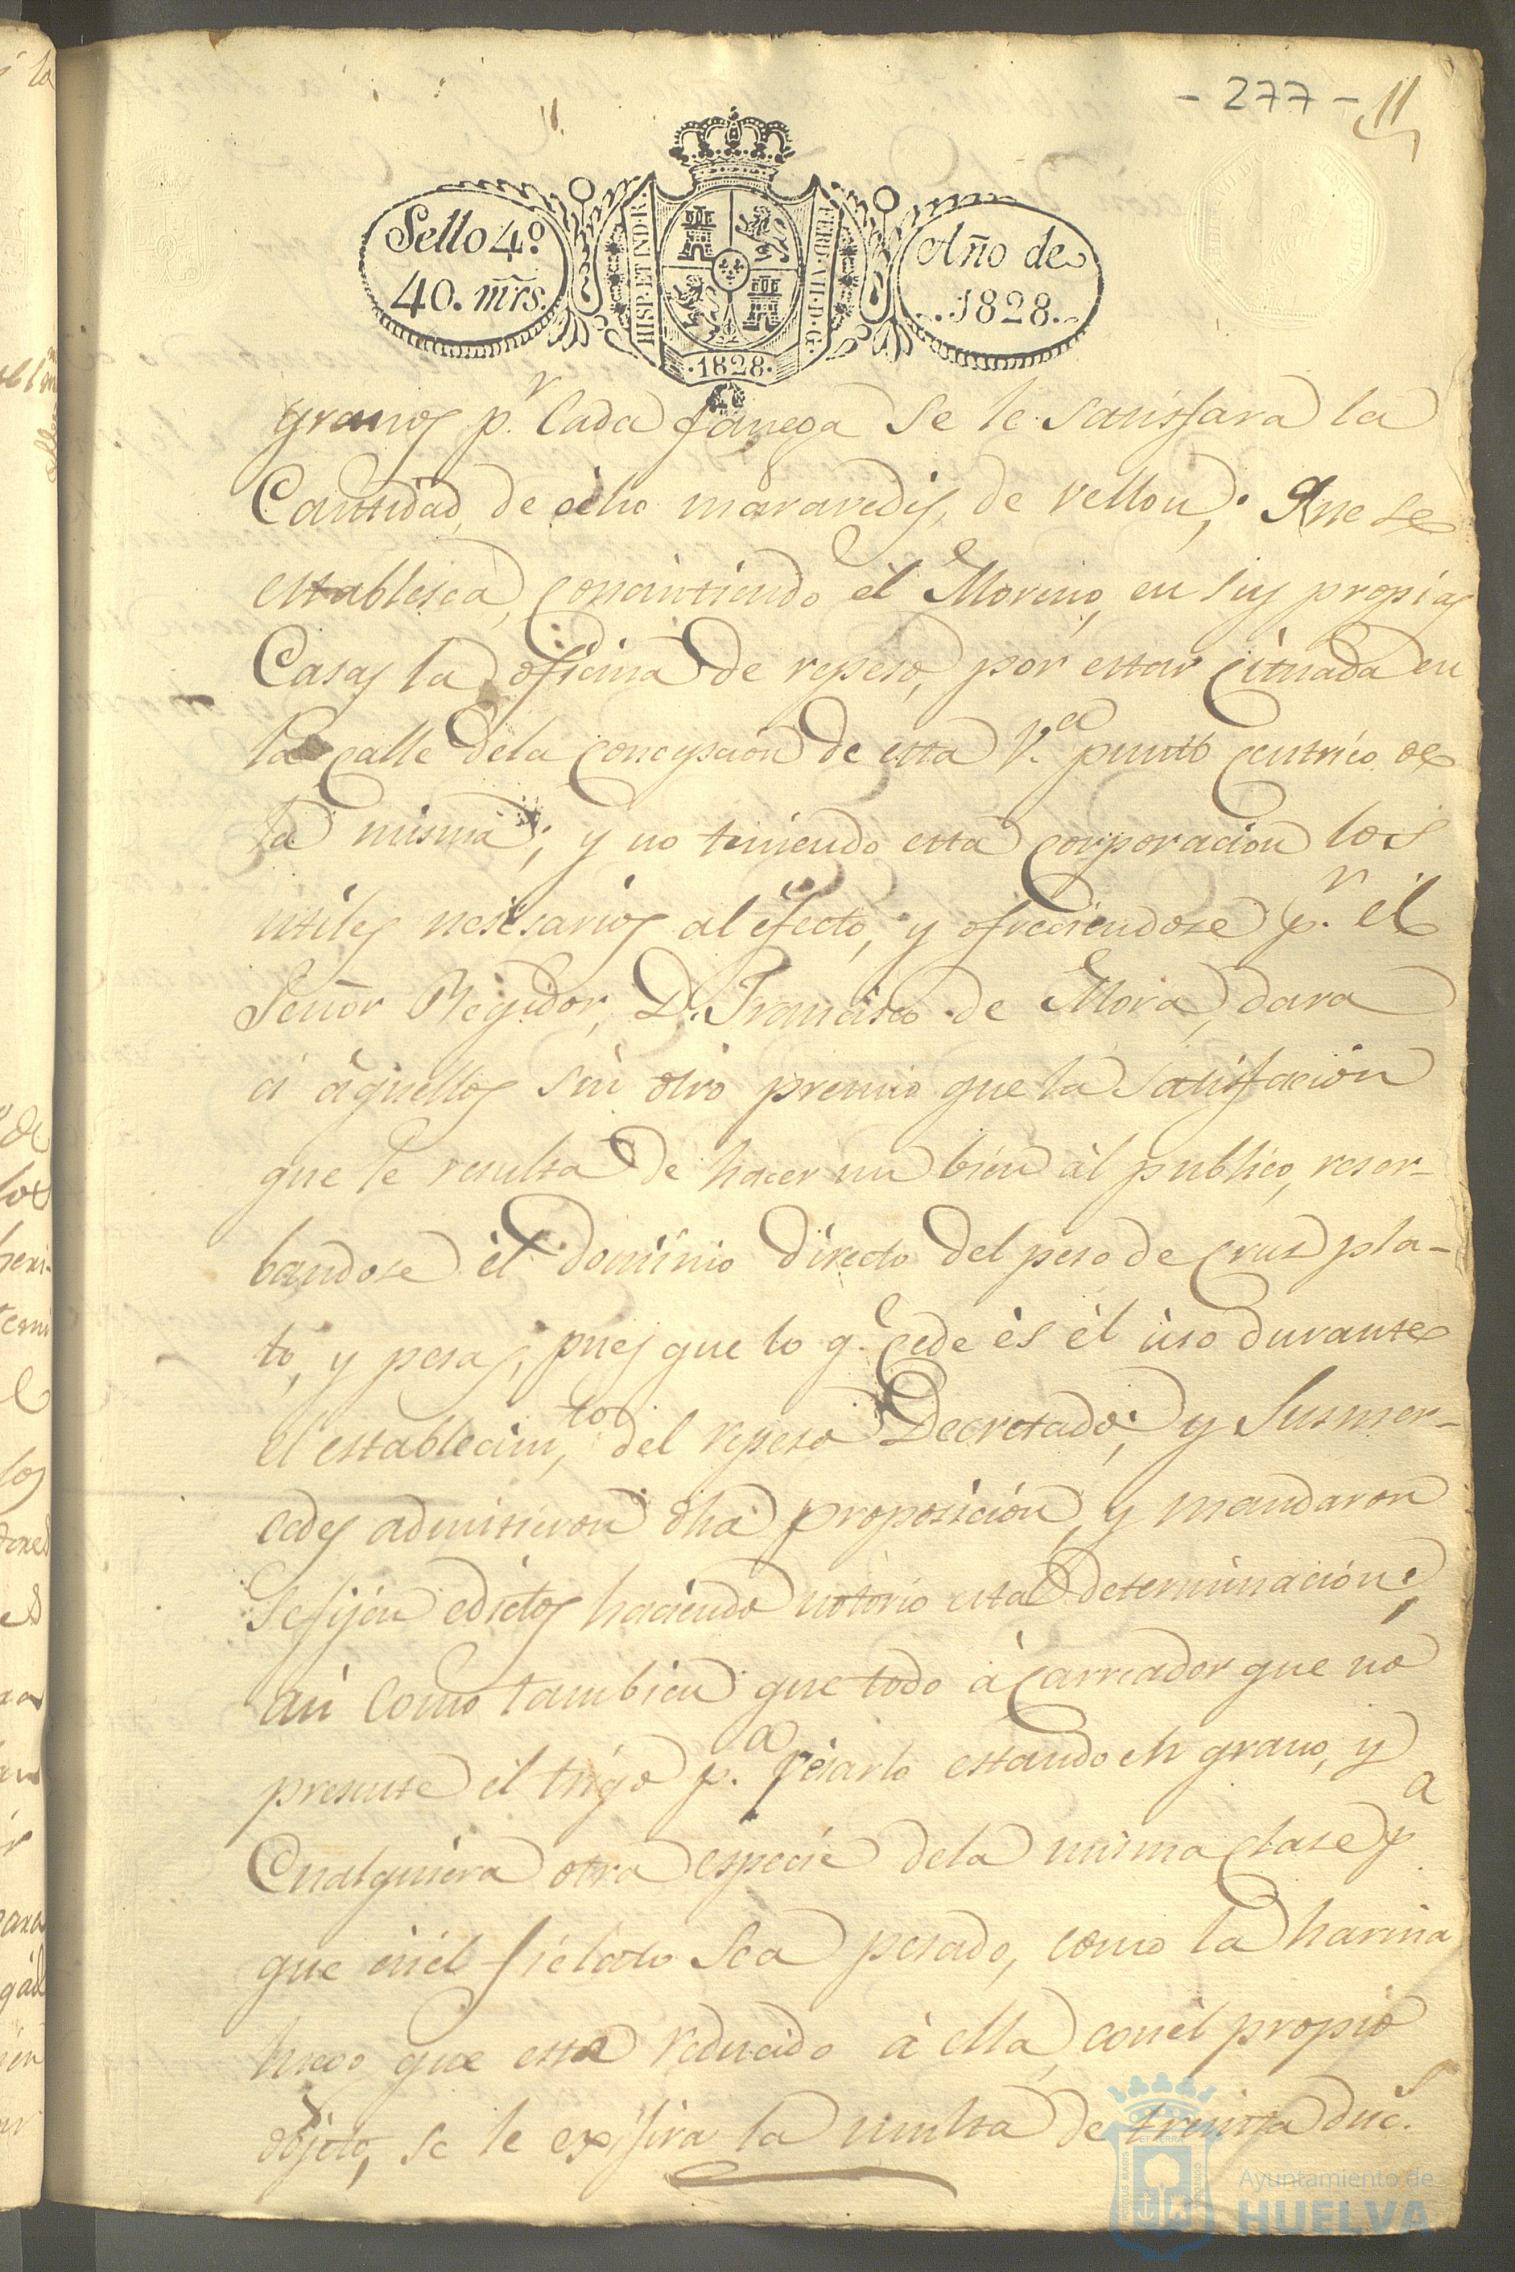 - 277 - 11
11.
Sello 4.º
40. mrs.
HISP. ET IND. R.
FERD. VII. D. G.
·1828·
Año de
1828.
granos p.r Cada fanega se le satisfara la
Cantidad de ocho maravedis, de vellon; Que se
establesca, concintiendo él Moreno, en sus propias
Casas la oficina de repeso, por estar cituada en
la calle dela Concepcion de esta V.a punto centrico de
la misma; y no teniendo esta corporacion los
utiles nesesarios al efecto, y ofreciendose p.r él
Señor Regidor, D. Francisco de Mora, dara
a áquellos sin otro premio que la satisfacion
que le resulta de hacer un bien ál publico, reser-
bandose él dominio directo del peso de Crus pla-
to, y pesas, pues que lo q.e Cede és él úso durante
el establecim.to del repeso Decretado; y Susmer-
cedes admitieron dha proposición, y mandaron
se fijen edictos haciendo notorio esta determinación;
asi como tambien que todo ácarreador que nó
presente él trigo p.a pesarlo estando en grano, y
Cualquiera otra especie dela misma clase p.a
que enél fielato sea pesado, como la harina
luego que este reducido á ella, conél propio
objeto, se le exsijira la multa de treinta duc.s
Ayuntamiento de
HUELVA